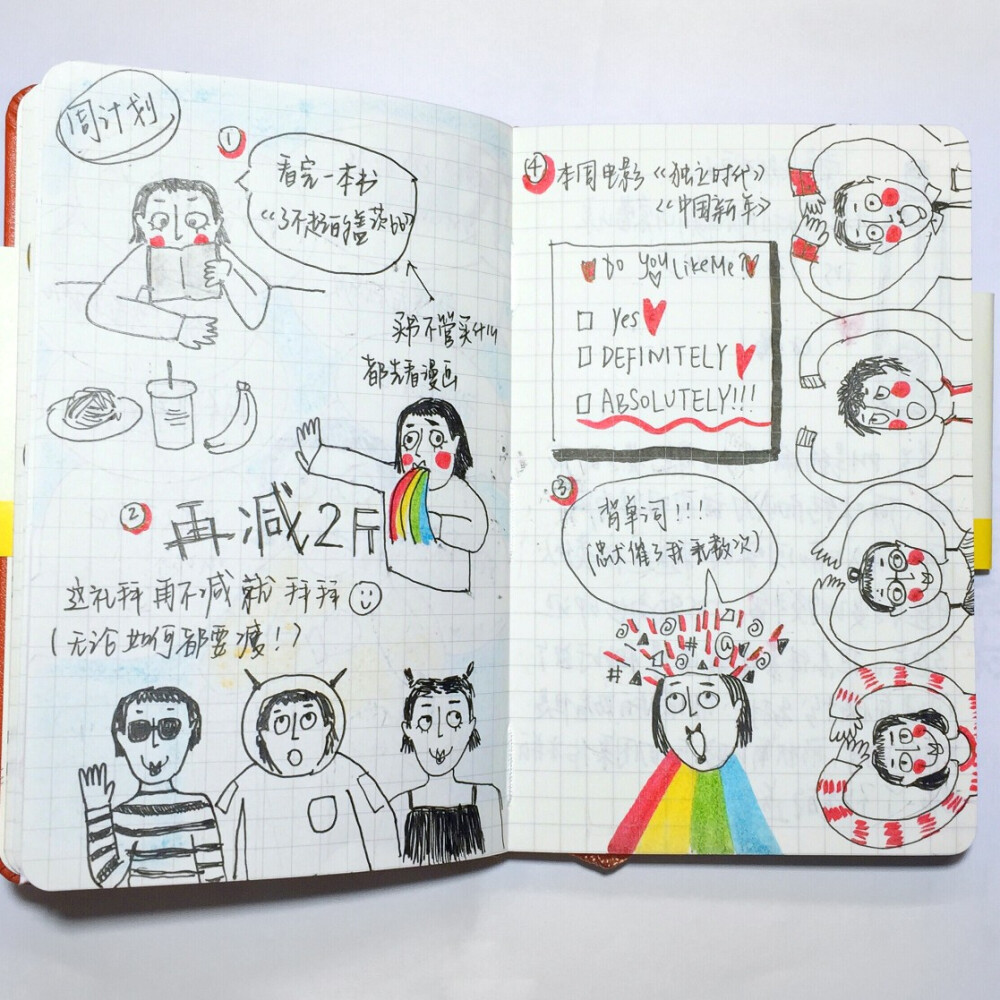 周计划
①
看完一本书
《了不起的盖茨比》
买书不管买什么
都先看漫画
②
再减2斤
这礼拜再不减就拜拜
(无论如何都要瘦!)
④ 本周电影《独立时代》
《中国新年》
Do You Like Me?
Yes
DEFINITELY
ABSOLUTELY!!!
③
背单词!!!
(忠犬催了我无数次)
# @
#